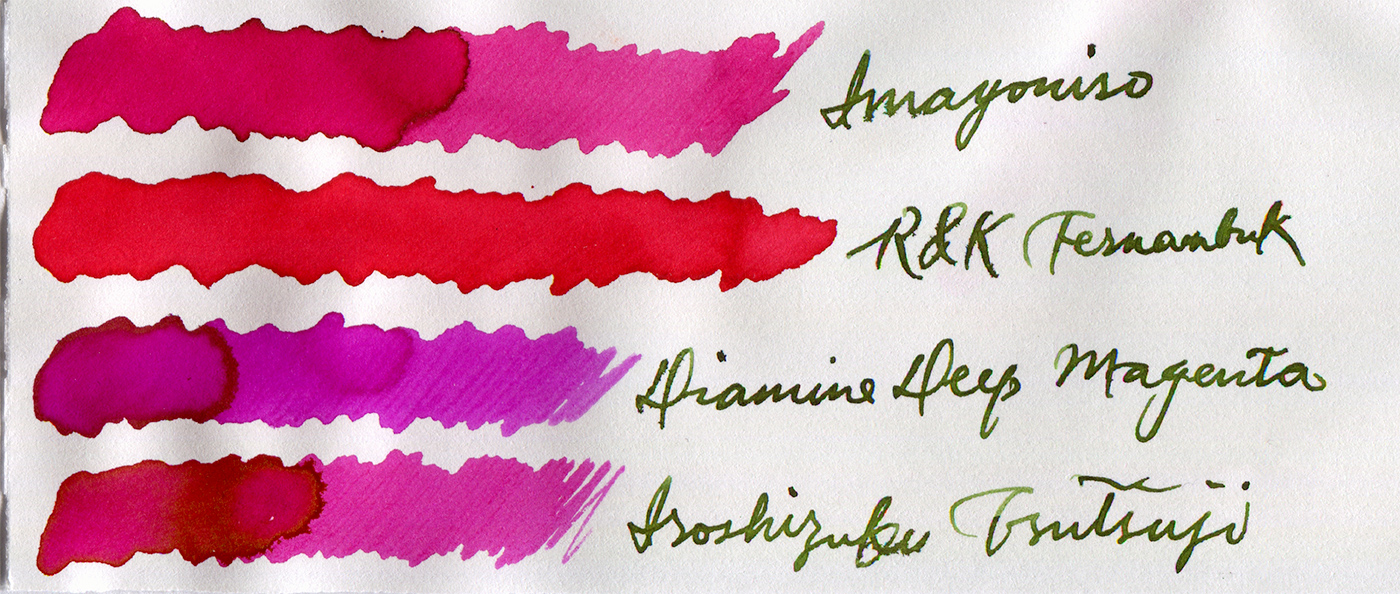 Imayoniso
R&K Fernambuk
Diamine Deep Magenta
Iroshizuku Tsutsuji